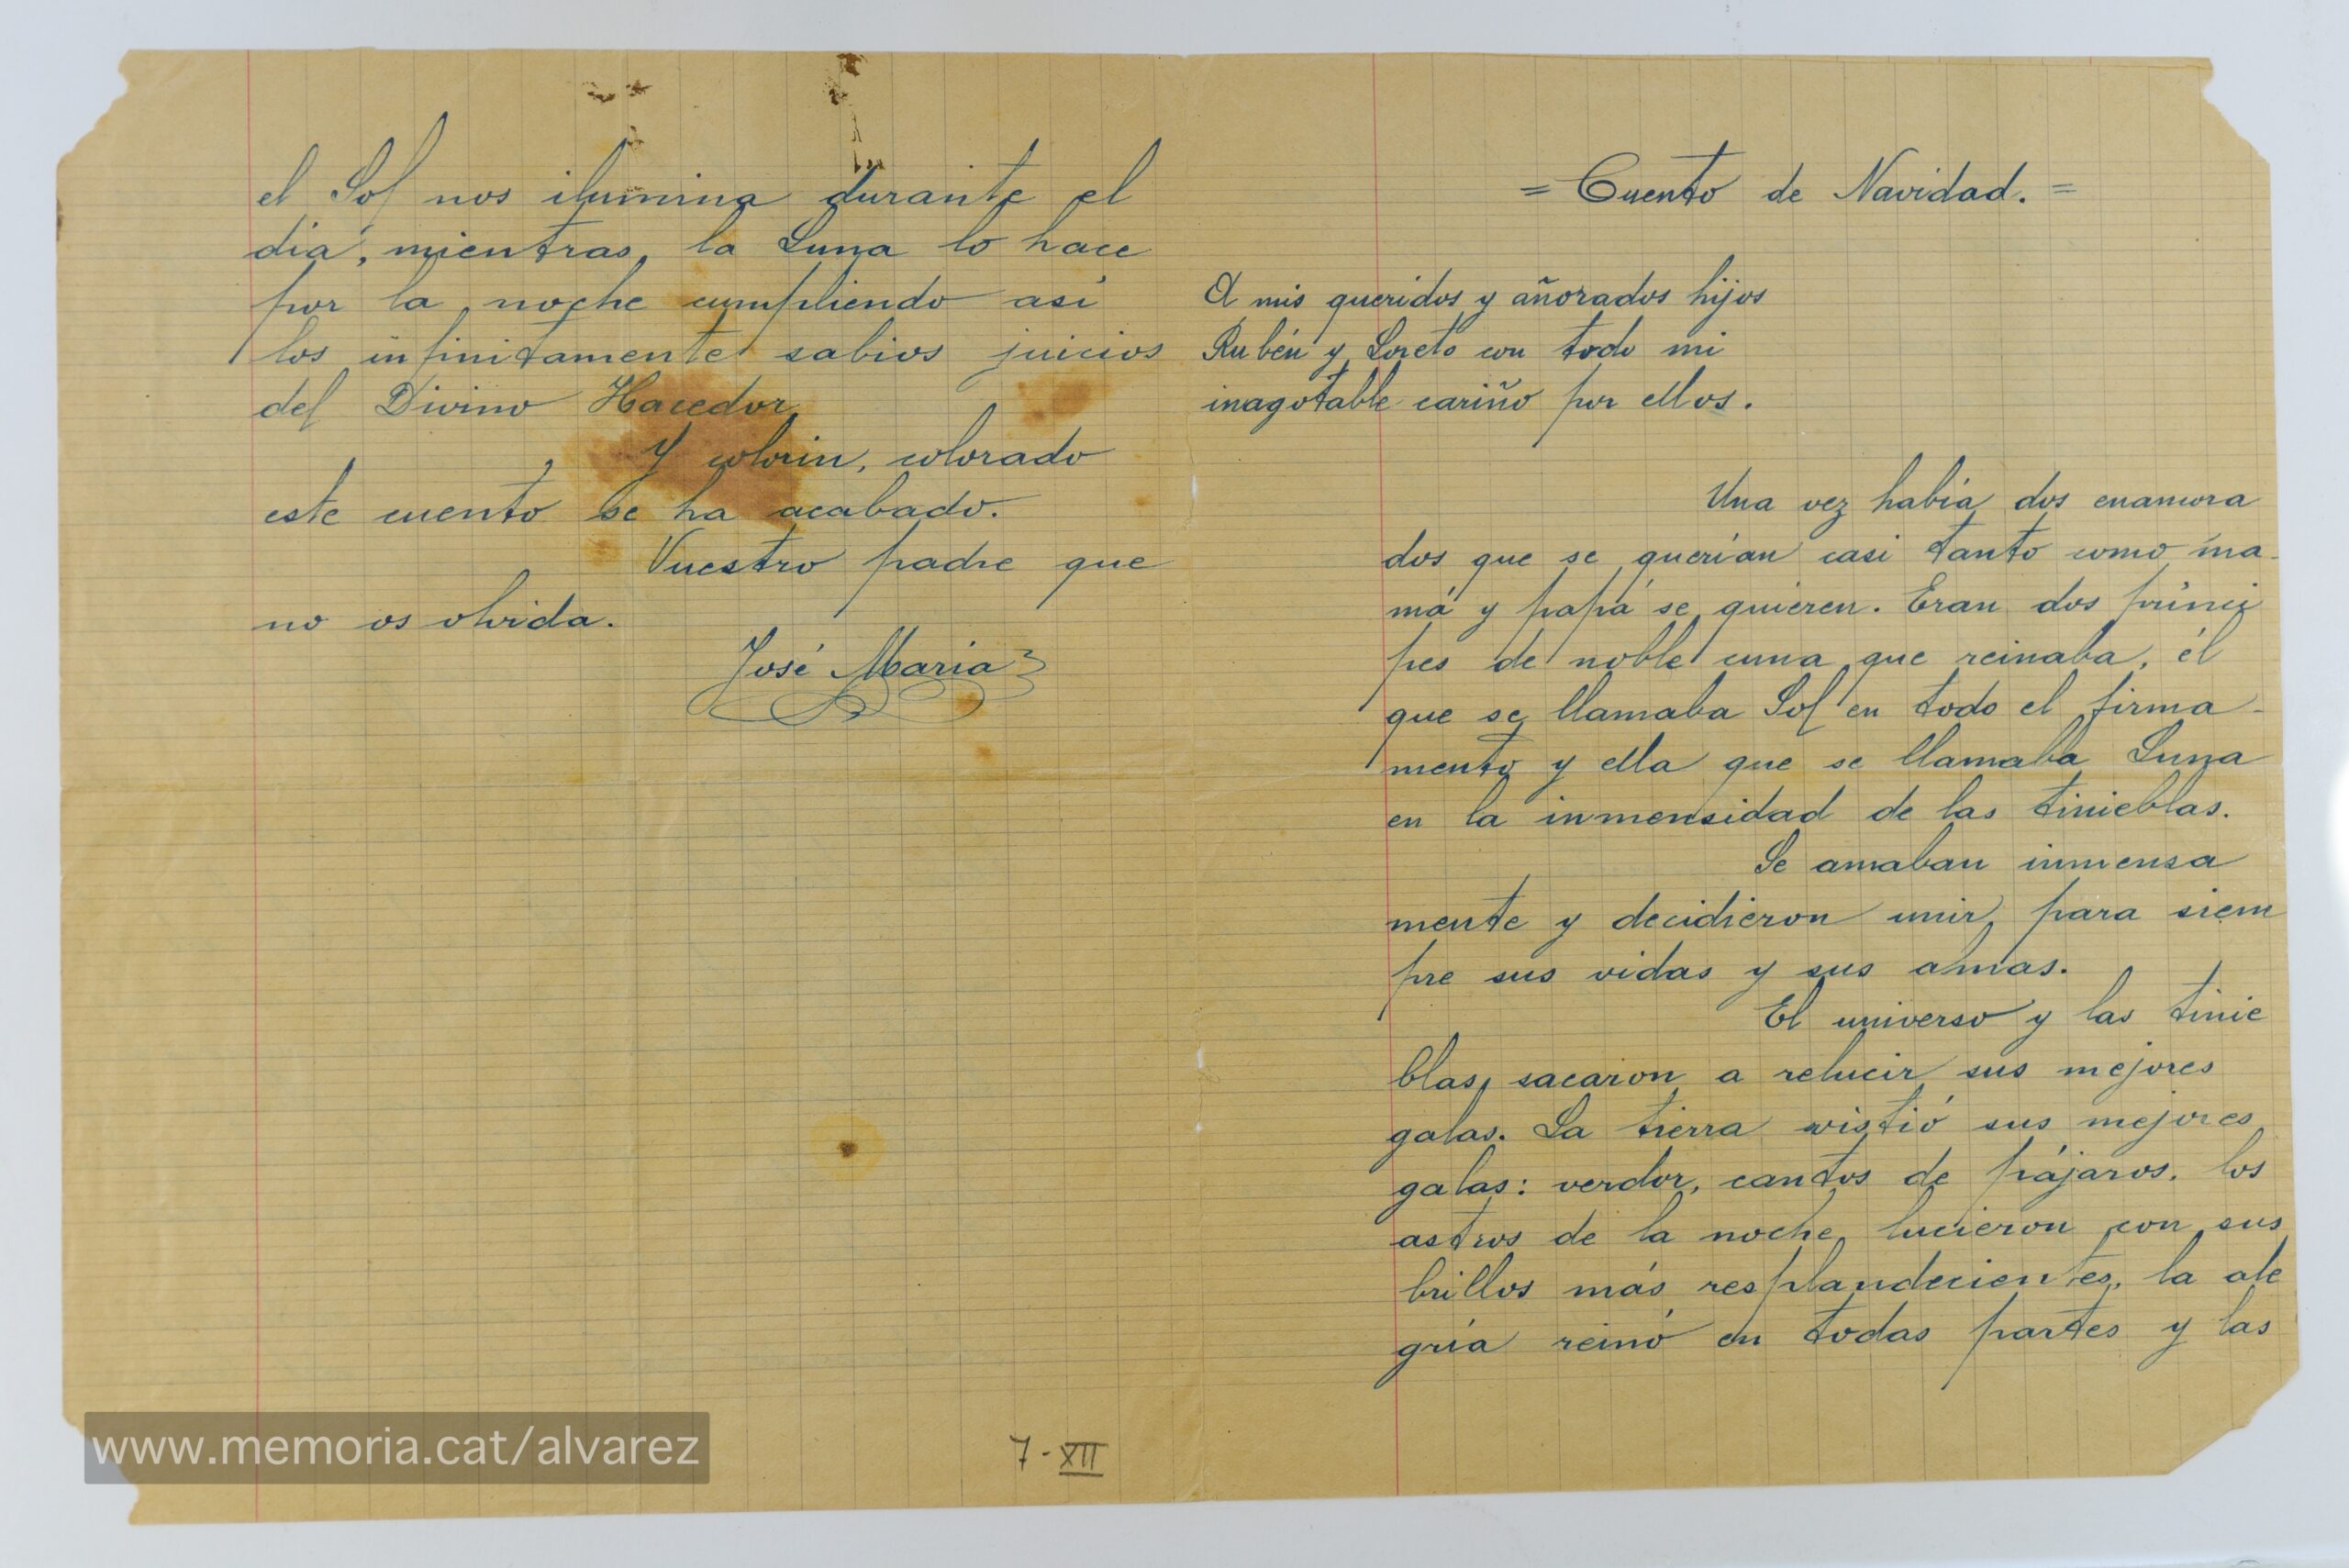 el Sol nos ilumina durante el
dia, mientras, la Luna lo hace
por la noche cumpliendo así
los infinitamente sabios juicios
del Divino Hacedor.
Y colorin, colorado
este cuento se ha acabado.
Vuestro padre que
no os olvida.
José Maria
7-XII
= Cuento de Navidad. =
A mis queridos y añorados hijos
Rubén y Loreto con todo mi
inagotable cariño por ellos.
Una vez había dos enamora
dos que se querían casi tanto como ma-
má y papá se quieren. Eran dos prínci
pes de noble cuna que reinaba, él
que se llamaba Sol en todo el firma-
mento y ella que se llamaba Luna
en la inmensidad de las tinieblas.
Se amaban inmensa
mente y decidieron unir para siem
pre sus vidas y sus almas.
El universo y las tinie
blas, sacaron a relucir sus mejores
galas. La tierra vistió sus mejores
galas: verdor, cantos de pájaros. los
astros de la noche lucieron con sus
brillos más resplandecientes, la ale
gría reinó en todas partes y las
www.memoria.cat/alvarez